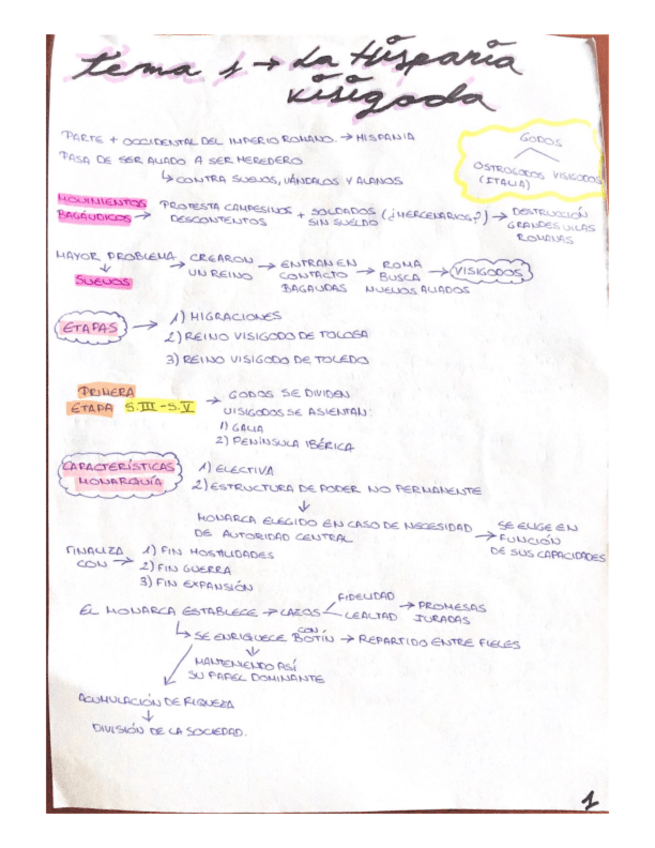 tema 1 → La Hispania
visigoda
PARTE + OCCIDENTAL DEL IMPERIO ROMANO. → HISPANIA
PASA DE SER ALIADO A SER HEREDERO
↳ CONTRA SUEVOS, VÁNDALOS Y ALANOS
GODOS
OSTROGODOS VISIGODOS
(ITALIA)
MOVIMIENTOS
BAGÁUDICOS → PROTESTA CAMPESINOS + SOLDADOS (¿MERCENARIOS?) → DESTRUCCIÓN
DESCONTENTOS SIN SUELDO GRANDES VILLAS
ROMANAS
MAYOR PROBLEMA → CREARON → ENTRAN EN → ROMA → VISIGODOS
↓ UN REINO CONTACTO BUSCA
SUEVOS BAGAUDAS NUEVOS ALIADOS
ETAPAS → 1) MIGRACIONES
2) REINO VISIGODO DE TOLOSA
3) REINO VISIGODO DE TOLEDO
PRIMERA
ETAPA S.III - S.V → GODOS SE DIVIDEN
VISIGODOS SE ASIENTAN:
1) GALIA
2) PENÍNSULA IBÉRICA
CARACTERÍSTICAS 1) ELECTIVA
MONARQUÍA 2) ESTRUCTURA DE PODER NO PERMANENTE
↓
MONARCA ELEGIDO EN CASO DE NECESIDAD → SE ELIGE EN
DE AUTORIDAD CENTRAL FUNCIÓN
DE SUS CAPACIDADES
FINALIZA 1) FIN HOSTILIDADES
CON → 2) FIN GUERRA
3) FIN EXPANSIÓN
EL MONARCA ESTABLECE → LAZOS FIDELIDAD → PROMESAS
LEALTAD JURADAS
↳ SE ENRIQUECE CON BOTÍN → REPARTIDO ENTRE FIELES
↓
MANTENIENDO ASÍ
SU PAPEL DOMINANTE
ACUMULACIÓN DE RIQUEZA
↓
DIVISIÓN DE LA SOCIEDAD.
1